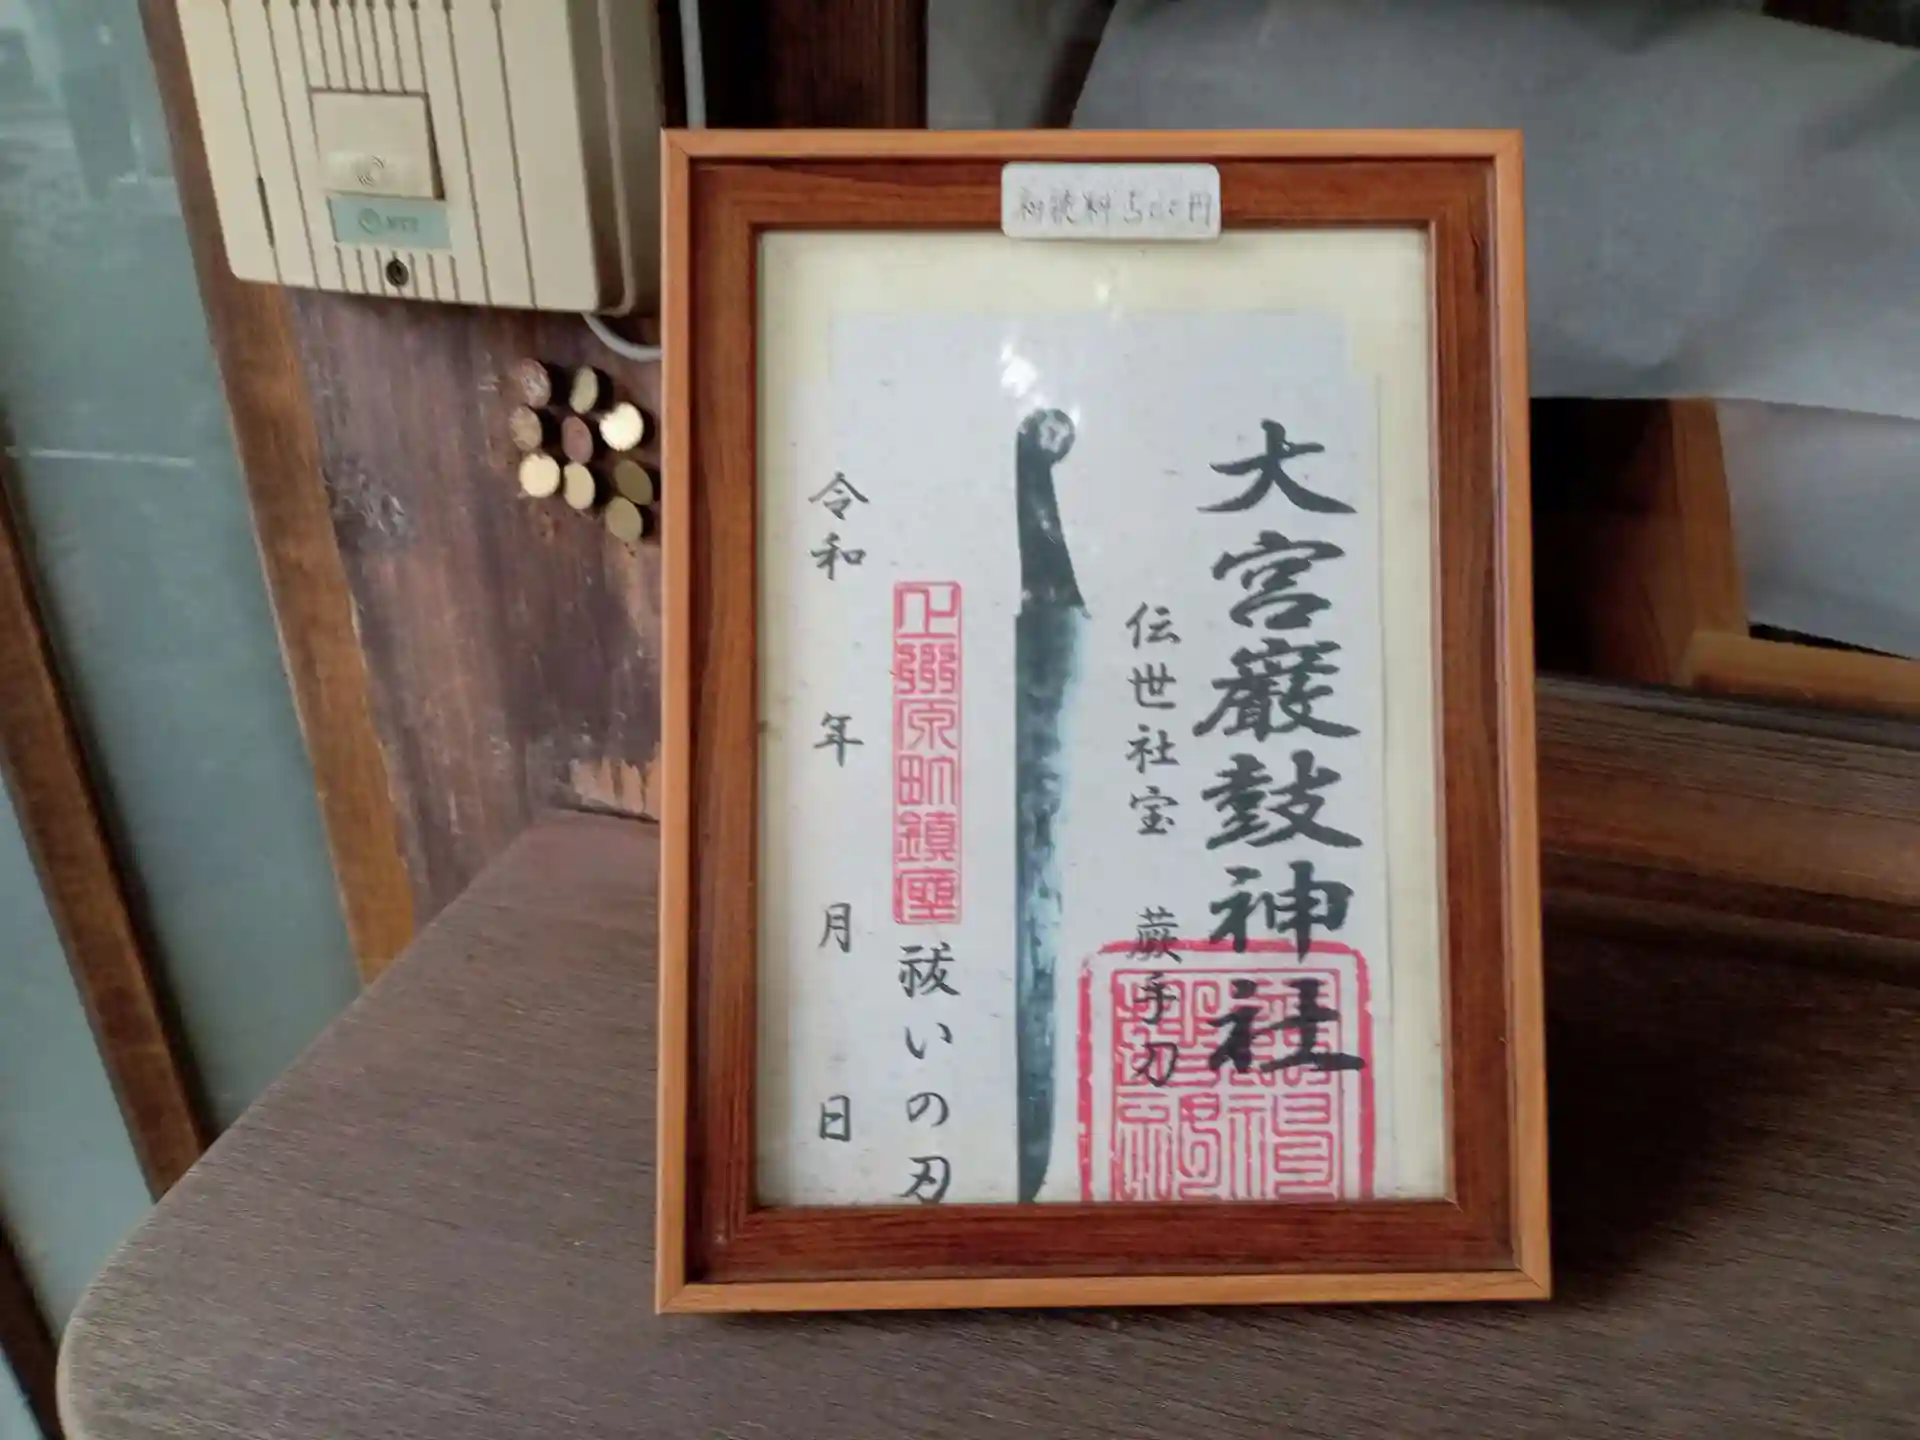 初穂料500円
大宮巖鼓神社
伝世社宝 蕨手刀
祓いの刃
上州原町鎮座
令和 年 月 日